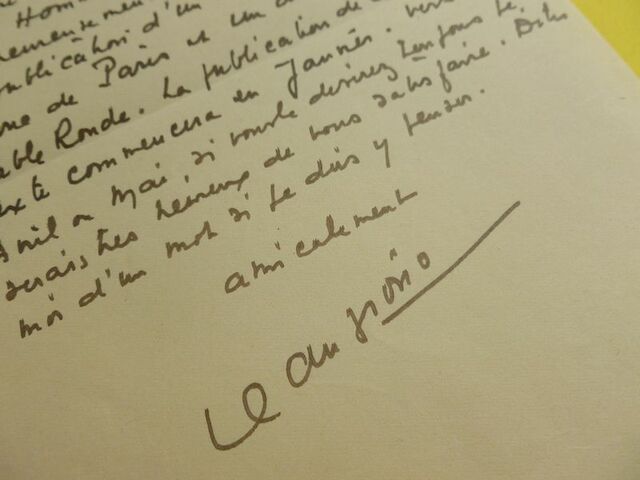 Homm
publication d'un
de Paris et un
able Ronde. La publication de
exte commencera en Janvier. vers
Avril ou Mai, si vous le désirez
serais très heureux de vous satisfaire. Dites
moi d'un mot si je dois y penser.
amicalement
Jean Giono